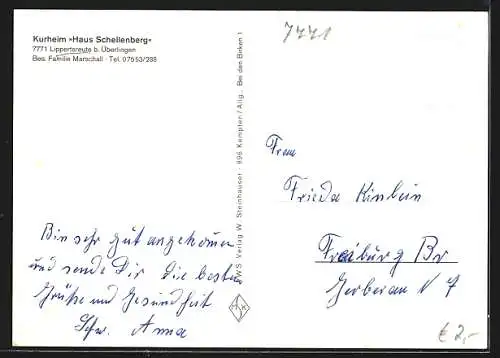 Kurheim »Haus Schellenberg«
7771 Lippertsreute b. Überlingen
Bes. Familie Marschall · Tel. 07553/288
7771
WS Verlag W. Steinhauser · 896 Kempten/Allg., Bei den Birken 1
Bin sehr gut angekommen
und sende Dir die besten
Grüße und Gesundheit
Schw. Anna
Frau
Frieda
Freiburg Br
€ 2,-